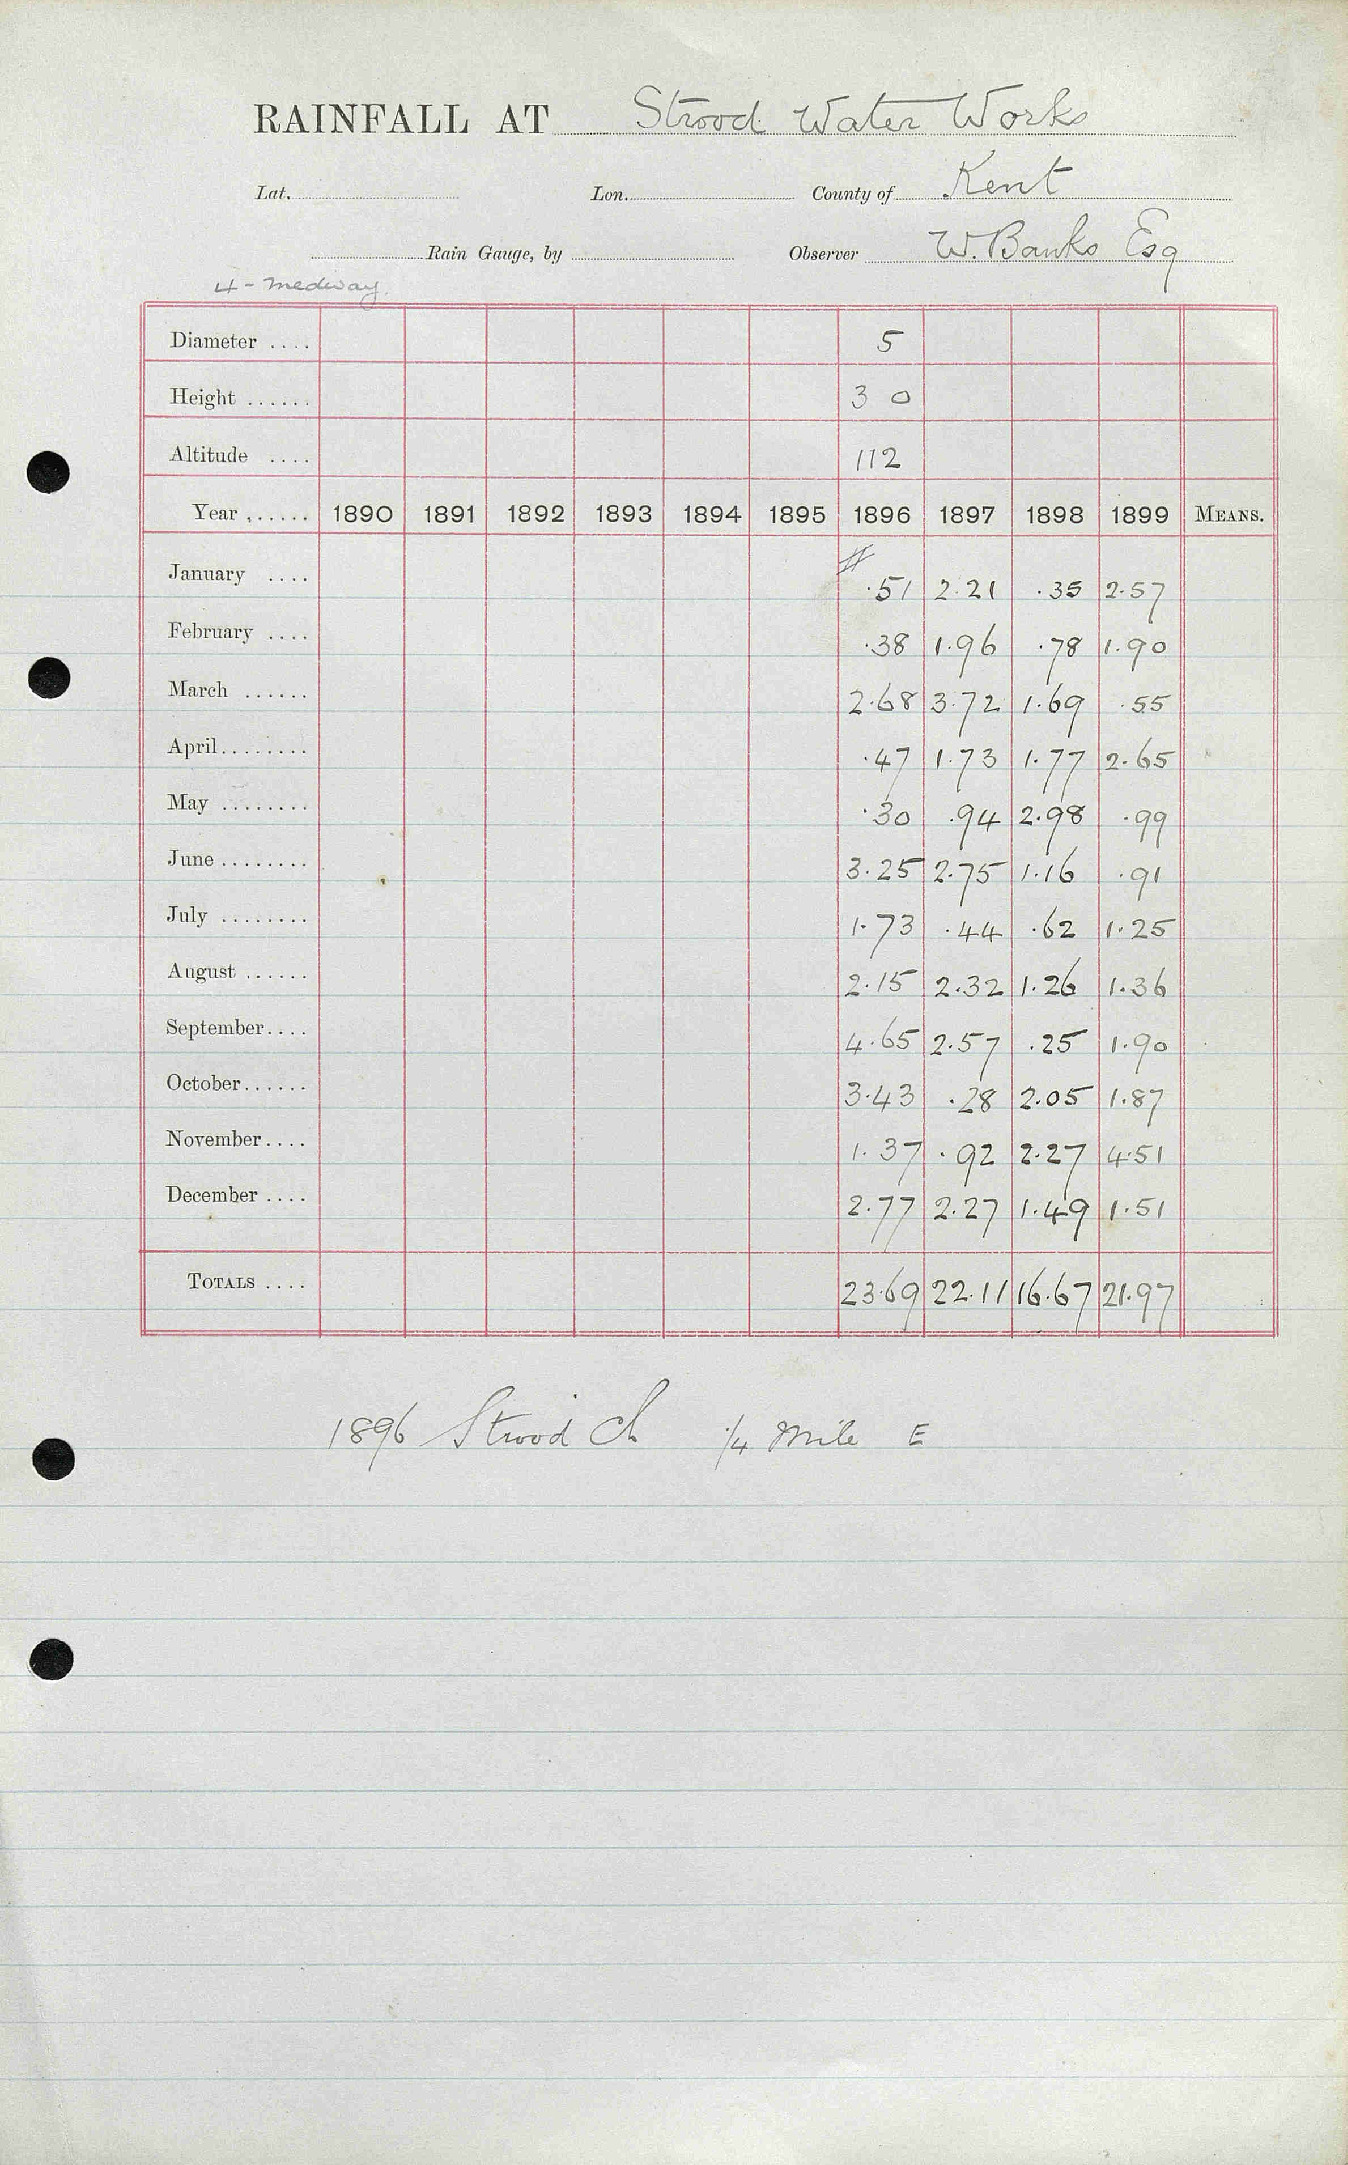 RAINFALL AT Strood Water Works
Lat. Lon. County of Kent
Rain Gauge, by Observer W. Banks Esq
4 - Medway
Diameter .... 5
Height ...... 3 0
Altitude .... 112
Year ...... 1890 1891 1892 1893 1894 1895 1896 1897 1898 1899 MEANS.
January .... .51 2.21 .35 2.57
February .... .38 1.96 .78 1.90
March ...... 2.68 3.72 1.69 .55
April........ .47 1.73 1.77 2.65
May ........ .30 .94 2.98 .99
June ........ 3.25 2.75 1.16 .91
July ........ 1.73 .44 .62 1.25
August ...... 2.15 2.32 1.26 1.36
September.... 4.65 2.57 .25 1.90
October...... 3.43 .28 2.05 1.87
November.... 1.37 .92 2.27 4.51
December .... 2.77 2.27 1.49 1.51
TOTALS .... 23.69 22.11 16.67 21.97
1896 Strood Ch 1/4 Mile E